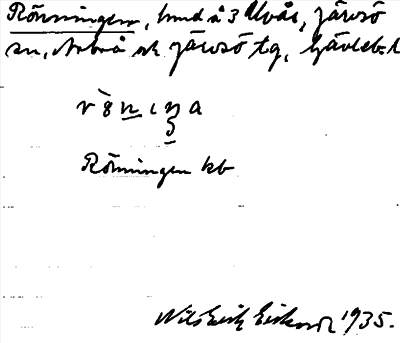 Rönningen, hmd å 3 Ulvås, Järvsö
sn, Arbrå och Järvsö tg, Gävleb. l
Rönningen kb
Nils Erik Eriksson 1935.